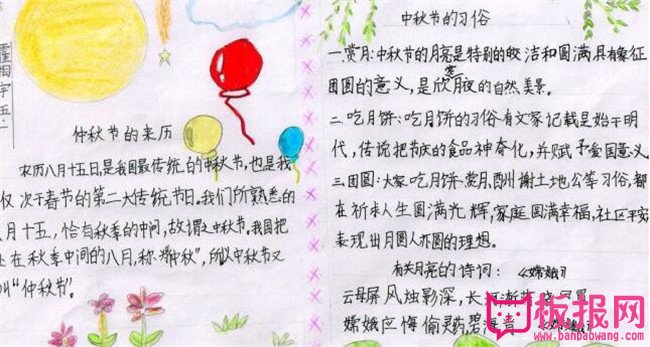 霍相宇五.二
仲秋节的来历
农历八月十五日,是我国最传统的中秋节,也是我
仅次于春节的第二大传统节日。我们所熟悉的
八月十五,恰有秋季的中间,故谓之中秋节。我国把
在秋季中间的八月,称为"仲秋",所以中秋节又
叫"仲秋节"。
中秋节的习俗
一.赏月:中秋节的月亮是特别的皎洁和圆满具有象征
团圆的意义,是欣赏月夜的自然美景。
二.吃月饼:吃月饼的习俗有文家记载是始于明
代,传说把节庆的食品神奇化,并赋予爱国意义
三.团圆:大家吃月饼、赏月,酬谢土地公等习俗,都
在祈求人生圆满光辉,家庭圆满幸福,社区平安
表现出月圆人亦圆的理想。
有关月亮的诗词: 《嫦娥》
云母屏风烛影深,长河渐
嫦娥应悔偷灵药碧海青
板报网
www.banbaowang.com